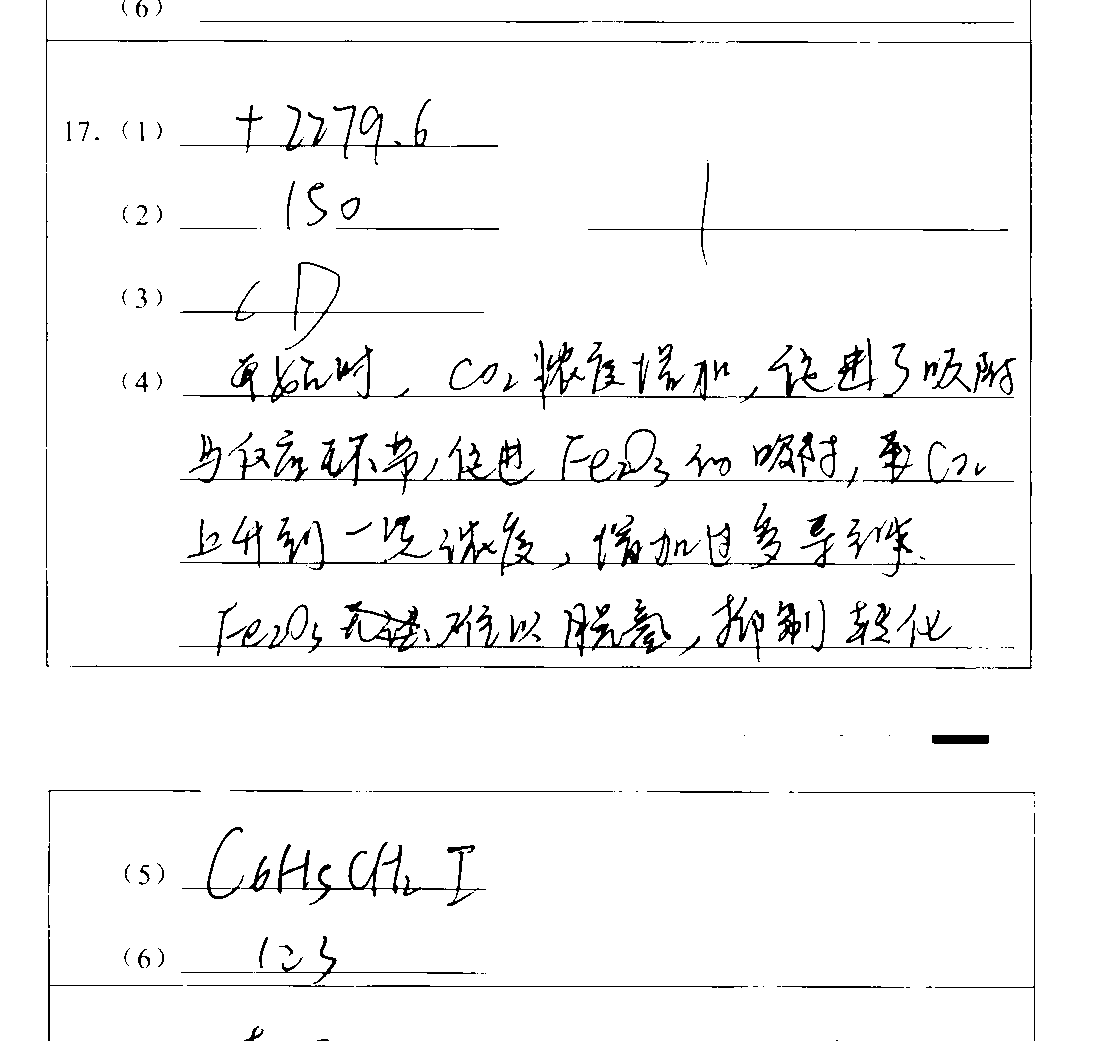 (6)
17. (1) +2279.6
(2) 150 1
(3) CD
(4) 开始时，CO2浓度增加，促进了吸附
与反应环节，促进Fe2O3的吸附，CO2
上升到一定浓度，增加过多导致
Fe2O3难以脱氢，抑制转化
(5) C6H5CH2I
(6) 123